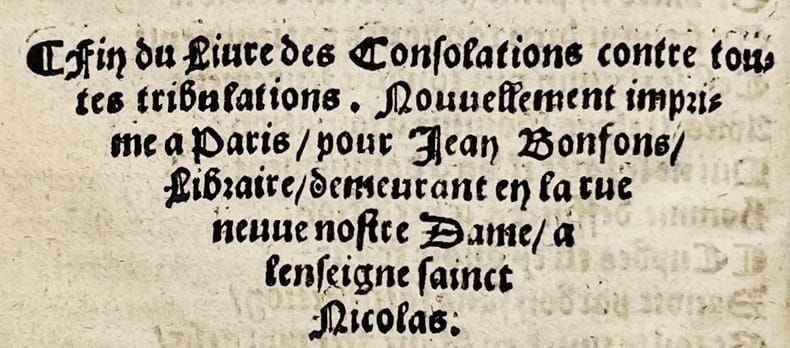 ¶Fin du Liure des Consolations contre tou⸗
tes tribulations. Nouuellement impri⸗
me a Paris/pour Jean Bonfons/
Libraire/demeurant en la rue
neuue nostre Dame/a
lenseigne sainct
Nicolas.